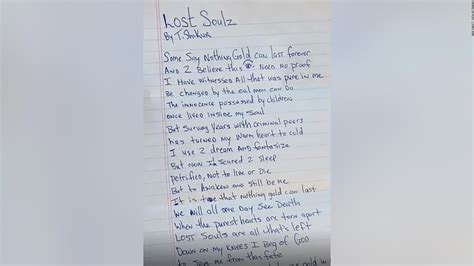 Lost Soulz
By T. Shakur
Some Say Nothing Gold can last forever
And 2 Believe this I Need No proof
I Have Witnessed All that was pure in me
Be changed by the evil men can Do
The innocence possessed by children
once lived inside my Soul
But Surving Years with criminal peers
has turned my warm heart to cold
I use 2 dream And fantasize
But now I'm Scared 2 Sleep
petrified, Not to live or Die
But to Awaken and still be me
It is true that nothing gold can last
We will all one day See Death
When the purest hearts are torn apart
LOST Souls are all what's left
Down on my knees I Beg of GOD
to Save me from this fate
gold in